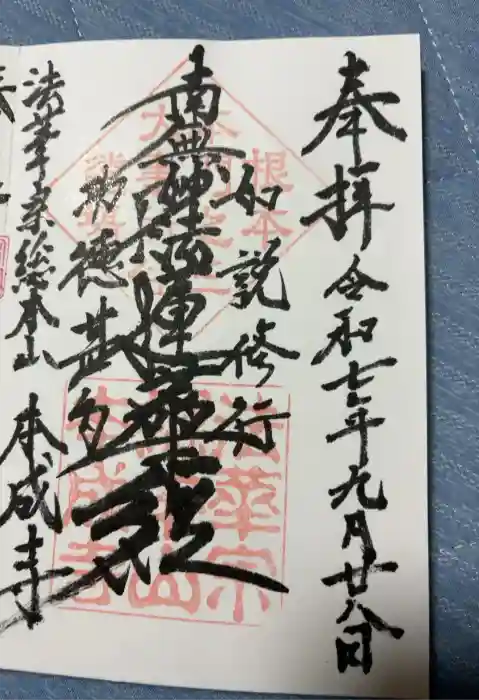 奉拝
令和七年九月廿八日
如説修行
南無妙法蓮華経
功徳甚多
法華宗総本山 本成寺
法華宗
本成寺
根本